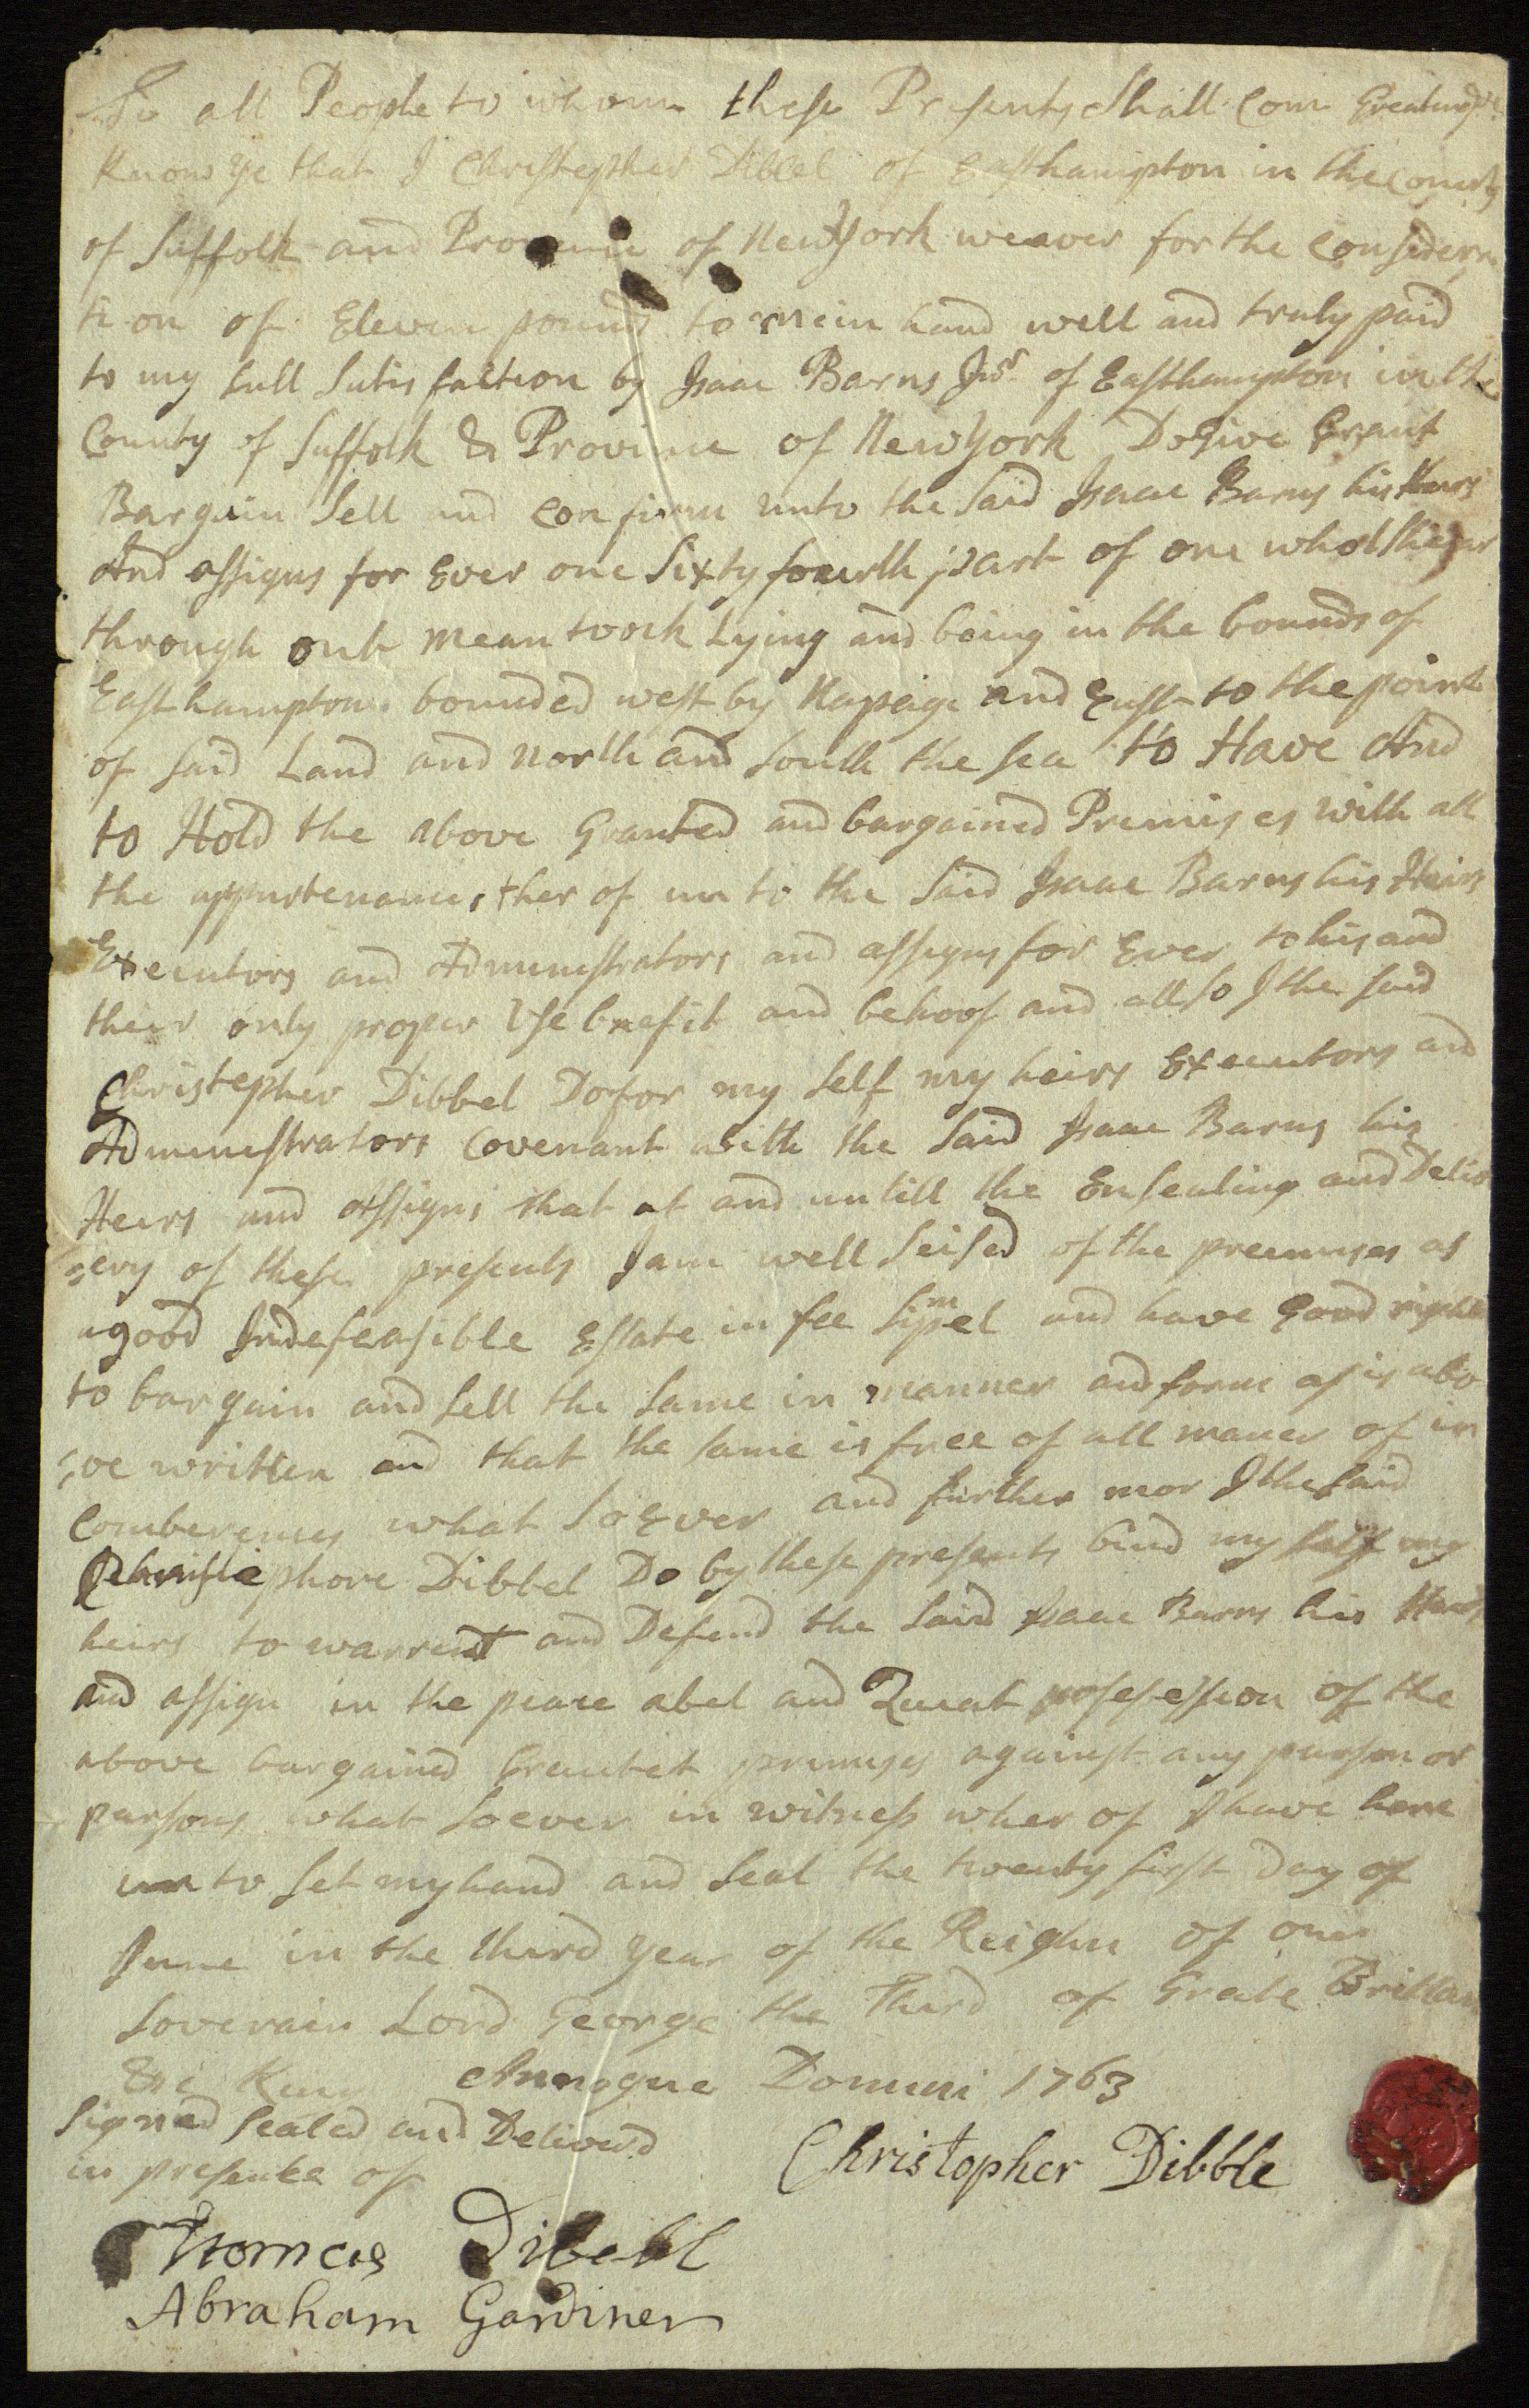 To all People to whom these Presents Shall Come Greating
Know ye that I Christepher Dibbel of Easthampton in the County
of Suffolk and Province of New York weaver for the Considera
tion of Eleven pound to me in hand well and truly paid
to my full Satisfaction by Isaac Barns Jnr of Easthampton in the
County of Suffolk & Province of New York Do Give Grant
Bargain Sell and Confirm unto the Said Isaac Barns his Heirs
And assigns for Ever one Sixty fourth part of one whol Shear
through out Meantoock Lying and being in the bounds of
East hampton bounded west by Napeige and East to the point
of said Land and North and South the sea to Have And
to Hold the above Granted and bargained Premises with all
the appurtenances ther of un to the Said Isaac Barns his Heirs
Executors and Administrators and assigns for Ever to his and
their only proper Use bnefit and behoof and allso I the said
Christepher Dibbel Do for my Self my heirs Executors and
Admenestrators Covenant with the Said Isaac Barns his
Heirs and Assigns that at and untill the Ensealing and Deliv
=ery of these presents I am well Seised of the premises as
a good Indefeasible Estate in fee Simpel and have Good right
to bargain and Sell the Same in manner and form as is abo
=ve written and that the Same is free of all maner of in
Comberences what SoEver and further mor I the Said
Christephore Dibbel Do by these presents bind my Self my
heirs to warrent and Defend the Said Isaac Barns his Heirs
and assign in the peace abel and Quiat posesession of the
above bargained Grantet premises against any parson or
parsons what Soever in witness wher of I have here
un to Set my hand and Seal the twenty first Day of
June in the third Year of the Reighn of our
Soverain Lord George the Third of Greate Brittan
&c King Annoque Domini 1763
Signed Sealed and Deliverd
in presents of
Christopher Dibble
Thomas Dibell
Abraham Gardiner